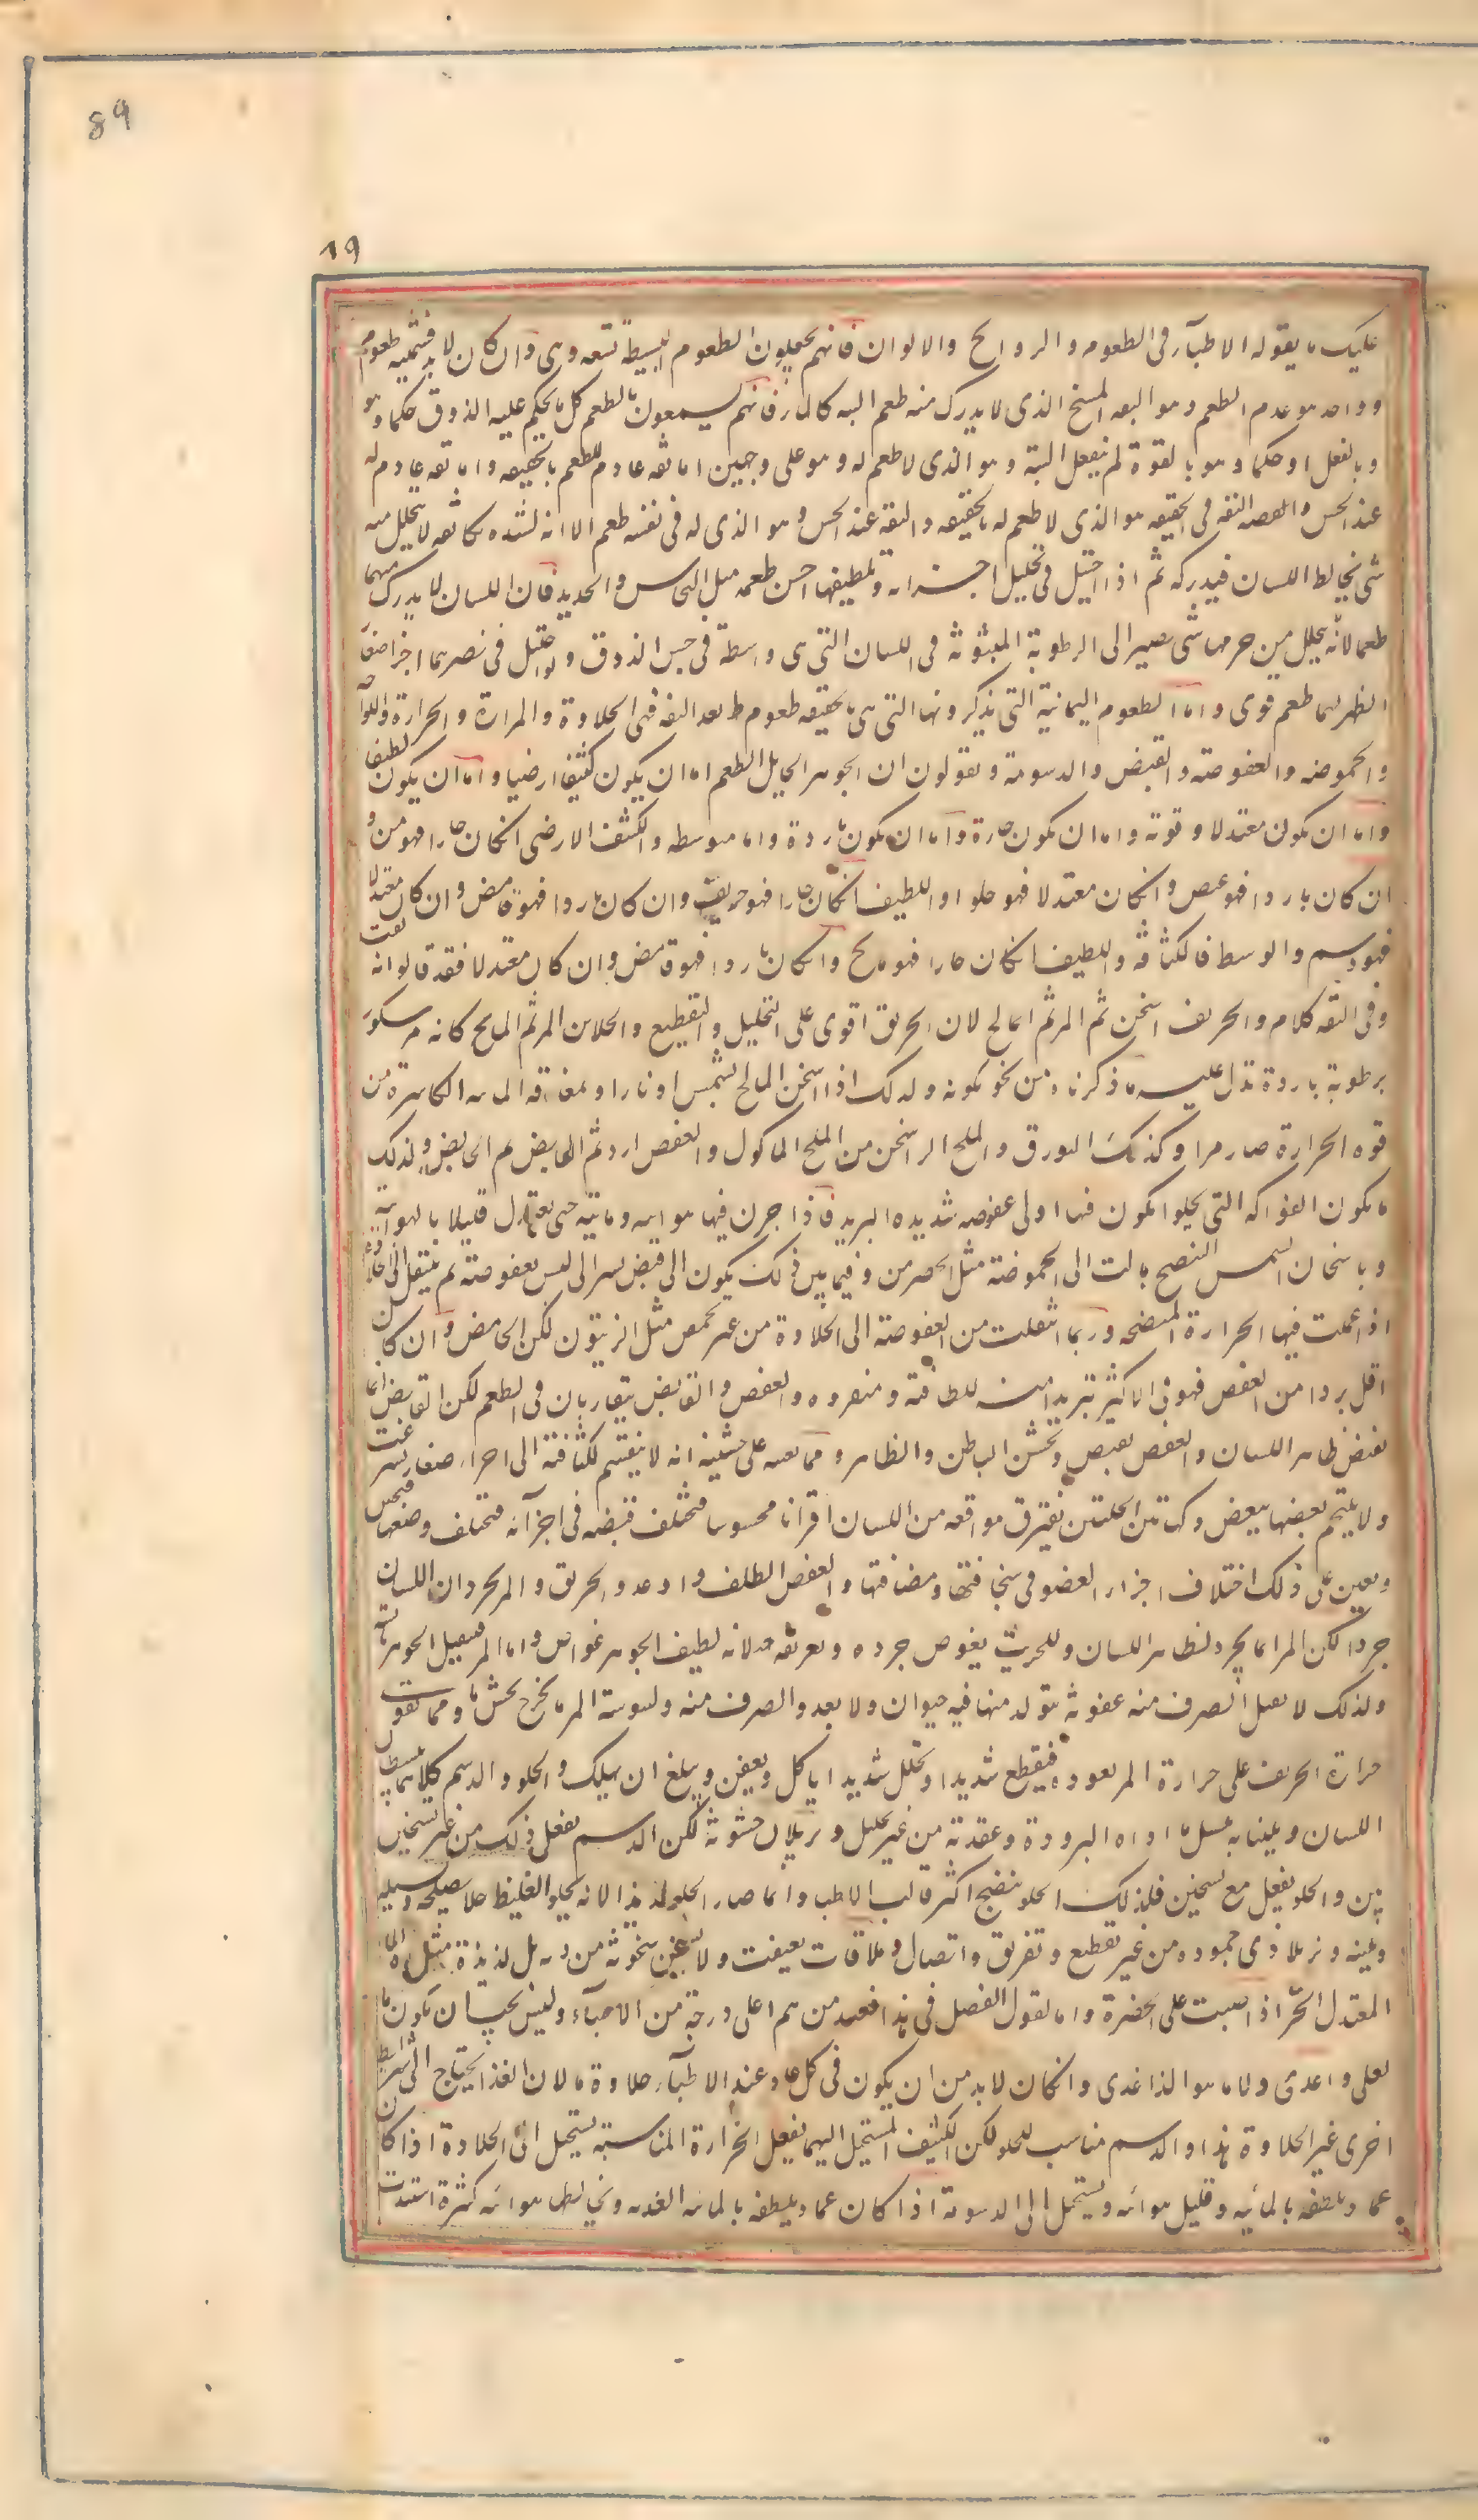 89
19
عليك ما يقوله الاطباء فى الطعوم والروائح والالوان فانهم يجعلون الطعوم البسيطة تسعه وهى وان كان لا بد فثمنيه طعوم
وواحد هو عدم الطعم وهو التفه المسخ الذى لا يدرك منه طعم البته كالماء فانهم يسمعون بالطعم كل ما يحكم عليه الذوق حكما وهو
وبالفعل او حكما وهو بالقوة لم يفعل البتة وهو الذى لا طعم له وهو على وجهين اما تفه عادم للطعم بالحقيقه واما تفه عادم له
عند الحس والتفه فى الحقيقه هو الذى لا طعم له بالحقيقه والتفه عند الحس وهو الذى له فى نفسه طعم الا انه لشده كثافته لا يتحلل منه
شى يخالط اللسان فيدركه ثم اذا احتيل فى تحليل اجزائه وتلطيفها احس طعمه مثل النحاس والحديد فان اللسان لا يدرك منهما
طعما لانه لا يتحلل من جرمهما شى يصير الى الرطوبة المبثوثة فى اللسان التى هى واسطة فى حس الذوق ولو احتيل فى تصييرهما اجزا صغارا
لظهر لهما طعم قوى واما الطعوم الثمانية التى يذكرونها التى هى بالحقيقه طعوم بعد التفه فهى الحلاوة والمرارة والحرارة والملوحه
والحموضه والعفوصة والقبض والدسومة ويقولون ان الجوهر الحامل للطعم اما ان يكون كثيفا ارضيا واما ان يكون لطيفا
واما ان يكون معتدلا وقوته واما ان تكون حارة واما ان تكون باردة واما متوسطه والكثيف الارضى ان كان حارا فهو مر و
ان كان باردا فهو عفص وان كان معتدلا فهو حلو واللطيف ان كان حارا فهو حريف وان كان باردا فهو حامض وان كان معتدلا
فهو دسم والوسط فى الكثافة واللطف ان كان حارا فهو مالح وان كان باردا فهو قابض وان كان معتدلا فقد قالوا انه تفه
وفى التفه كلام والحريف اسخن ثم المر ثم المالح لان الحريف اقوى على التحليل والتقطيع والجلا من المر ثم المالح كانه مر مكسور
برطوبة باردة تدل عليه ما ذكرناه من نحو تكونه ولذلك اذا اسخن المالح بشمس او نار او بمفارقه المائيه الكاسرة من
قوه الحرارة صار مرا وكذلك البورق والملح المر اسخن من الملح الماكول والعفص ابرد ثم القابض ثم الحامض ولذلك
ما تكون الفواكه التى تحلو تكون فيها اولا عفوصه شديده البرد فاذا جرى فيها هوائيه ومائية حتى تعتدل قليلا بالهوائية
وباسخان الشمس المنضج مالت الى الحموضة مثل الحصرم وفيما بين ذلك يكون الى قبض يسير الى ليس بعفوصة ثم ينتقل الى الحلاوة
اذا عملت فيها الحرارة المنضجه وربما انتقلت من العفوصة الى الحلاوة من غير تحمض مثل الزيتون لكن الحامض وان كان
اقل بردا من العفص فهو فى الاكثر تبريدا منه للطافته ونفوذه والعفص والقابض يتقاربان فى الطعم لكن القابض انما
يقبض ظاهر اللسان والعفص يقبض ويخشن الباطن والظاهر ومما يعينه على خشينه انه لا ينقسم لكثافته الى اجزاء صغار بسرعت
ولا يلتحم بعضها ببعض وكهاتين الحلتين تفترق مواقعه من اللسان افتراقا محسوسا فتختلف قبضه فى اجزائه فتختلف وضعها فتخشن
ويعين على ذلك اختلاف اجزاء العضو فى سخافتها ومصافتها والعفص الطف واوغد والحريف والمر يجردان اللسان
جردا لكن المر انما يجرد ظاهر اللسان والحريف يغوص جرده وتفريقه لانه لطيف الجوهر غواص واما المر فثقيل الجوهر يابسه
ولذلك لا يقبل الصرف منه عفونة يتولد منها فيه حيوان ولا يغذو الصرف منه وليبوسة المر ما يجرد بخشونه ومما تقوت
حرارة الحريف على حرارة المر نفوذه فيقطع شديدا ويحلل شديدا يأكل ويعفن ويبلغ ان يهلك والحلو والدسم كلاهما يبسطان
اللسان ويلينانه بتسييل ما اداه البرودة وعقدته من غير تحليل ويزيلان خشونة لكن الدسم يفعل ذلك من غير تسخين
بين والحلو يفعل مع تسخين فلذلك الحلو منضج اكثر قالت الاطبا وانما صار الحلو لذيذا لانه يجلو الغليظ جلا يصلحه ويسيله
ويلينه ويزيل اذى جموده من غير تقطيع وتفريق واتصال وملاقات تعيفت ولا تسخن سخونة من ... بل لذيذة مثل الما
المعتدل الحر اذا صبت على الخضرة واما لقول الفصل فى هذا فعند من هم اعلى درجة من الاطباء وليس يجب ان يكون ما
يغذو اعذى ولا ما هو الذ اغذى وان كان لا بد من ان يكون فى كل غاذ عند الاطباء حلاوة ما لان الغذا يحتاج الى شرايط
اخرى غير الحلاوة هذا والدسم مناسب للحلو لكن الكثيف المستحيل اليهما بفعل الحرارة المناسبة يستحيل الى الحلاوة اذا كان
عماد تلطفه بالمائيه وقليل هوائيه ويستحيل الى الدسومة اذا كان عماد تلطفه بالمائيه العذبه وتخالطها هوائيه كثيرة اشتدت